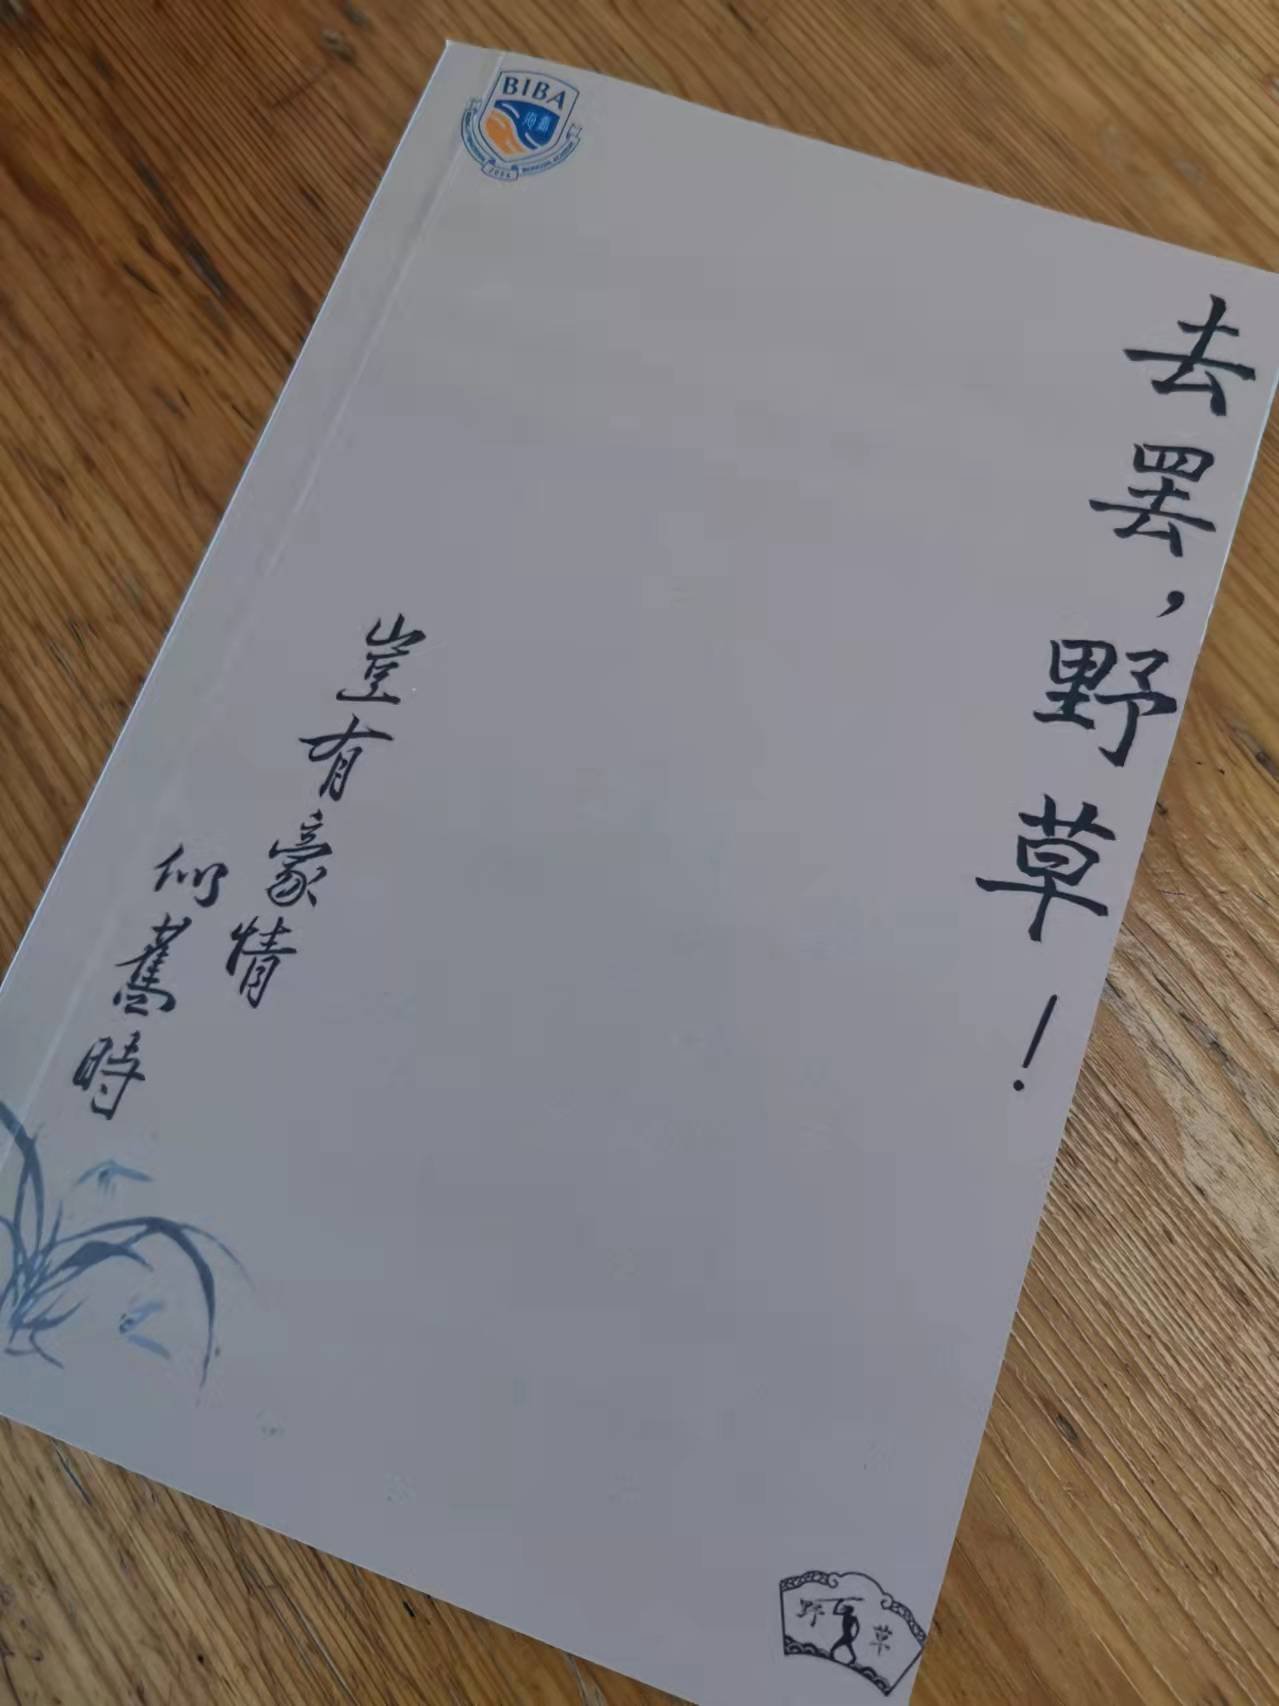 BIBA
海嘉
2006
去罢，野草！
豈有豪情
似舊時
野草